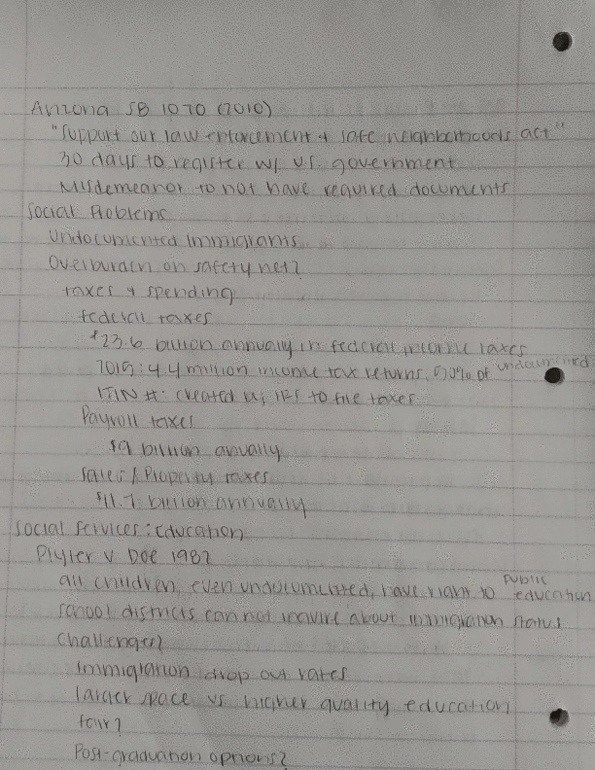 Arizona SB 1070 (2010)
"Support our law enforcement + safe neighborhoods act"
30 days to register w/ U.S. government
Misdemeanor to not have required documents
Social Problems
Undocumented Immigrants
Overburden on safety net?
taxes + spending
federal taxes
$23.6 billion annually in federal income taxes
2015: 4.4 million income tax returns, 50% of undocumented
ITIN #: created by IRS to file taxes
Payroll taxes
$9 billion anually
Sales / Property taxes
$11.7 billion annually
Social Services: Education
Plyler v Doe 1982
all children, even undocumented, have right to public education
school districts cannot inquire about immigration status
Challenges?
Immigration drop out rates
larger space vs higher quality education
fair?
Post-graduation options?